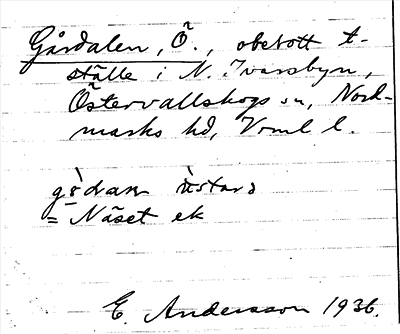 Gårdalen, Ö., obebott t-
ställe i N. Ivarsbyn,
Östervallskogs sn, Nord-
marks hd, Vrml l.
= Näset ek
E. Andersson 1936.